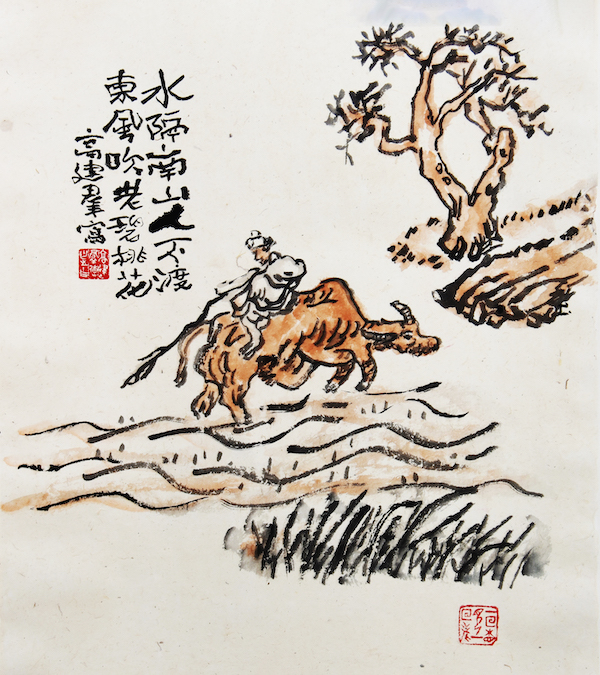 水隔南山人不渡
東風吹老碧桃花
高建羣寫